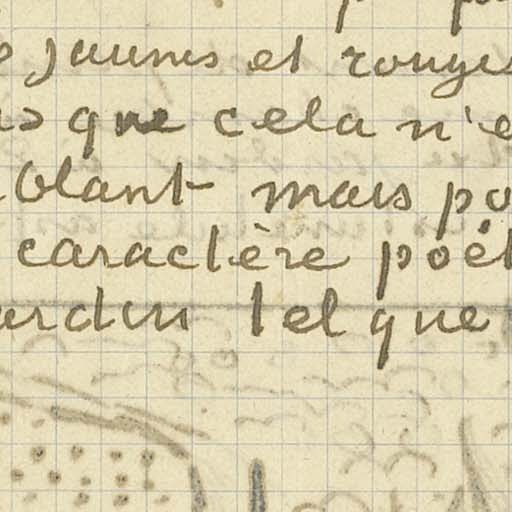 jaunes et rouges
que cela n'e
blant mais po
caractère poét
ardin tel que